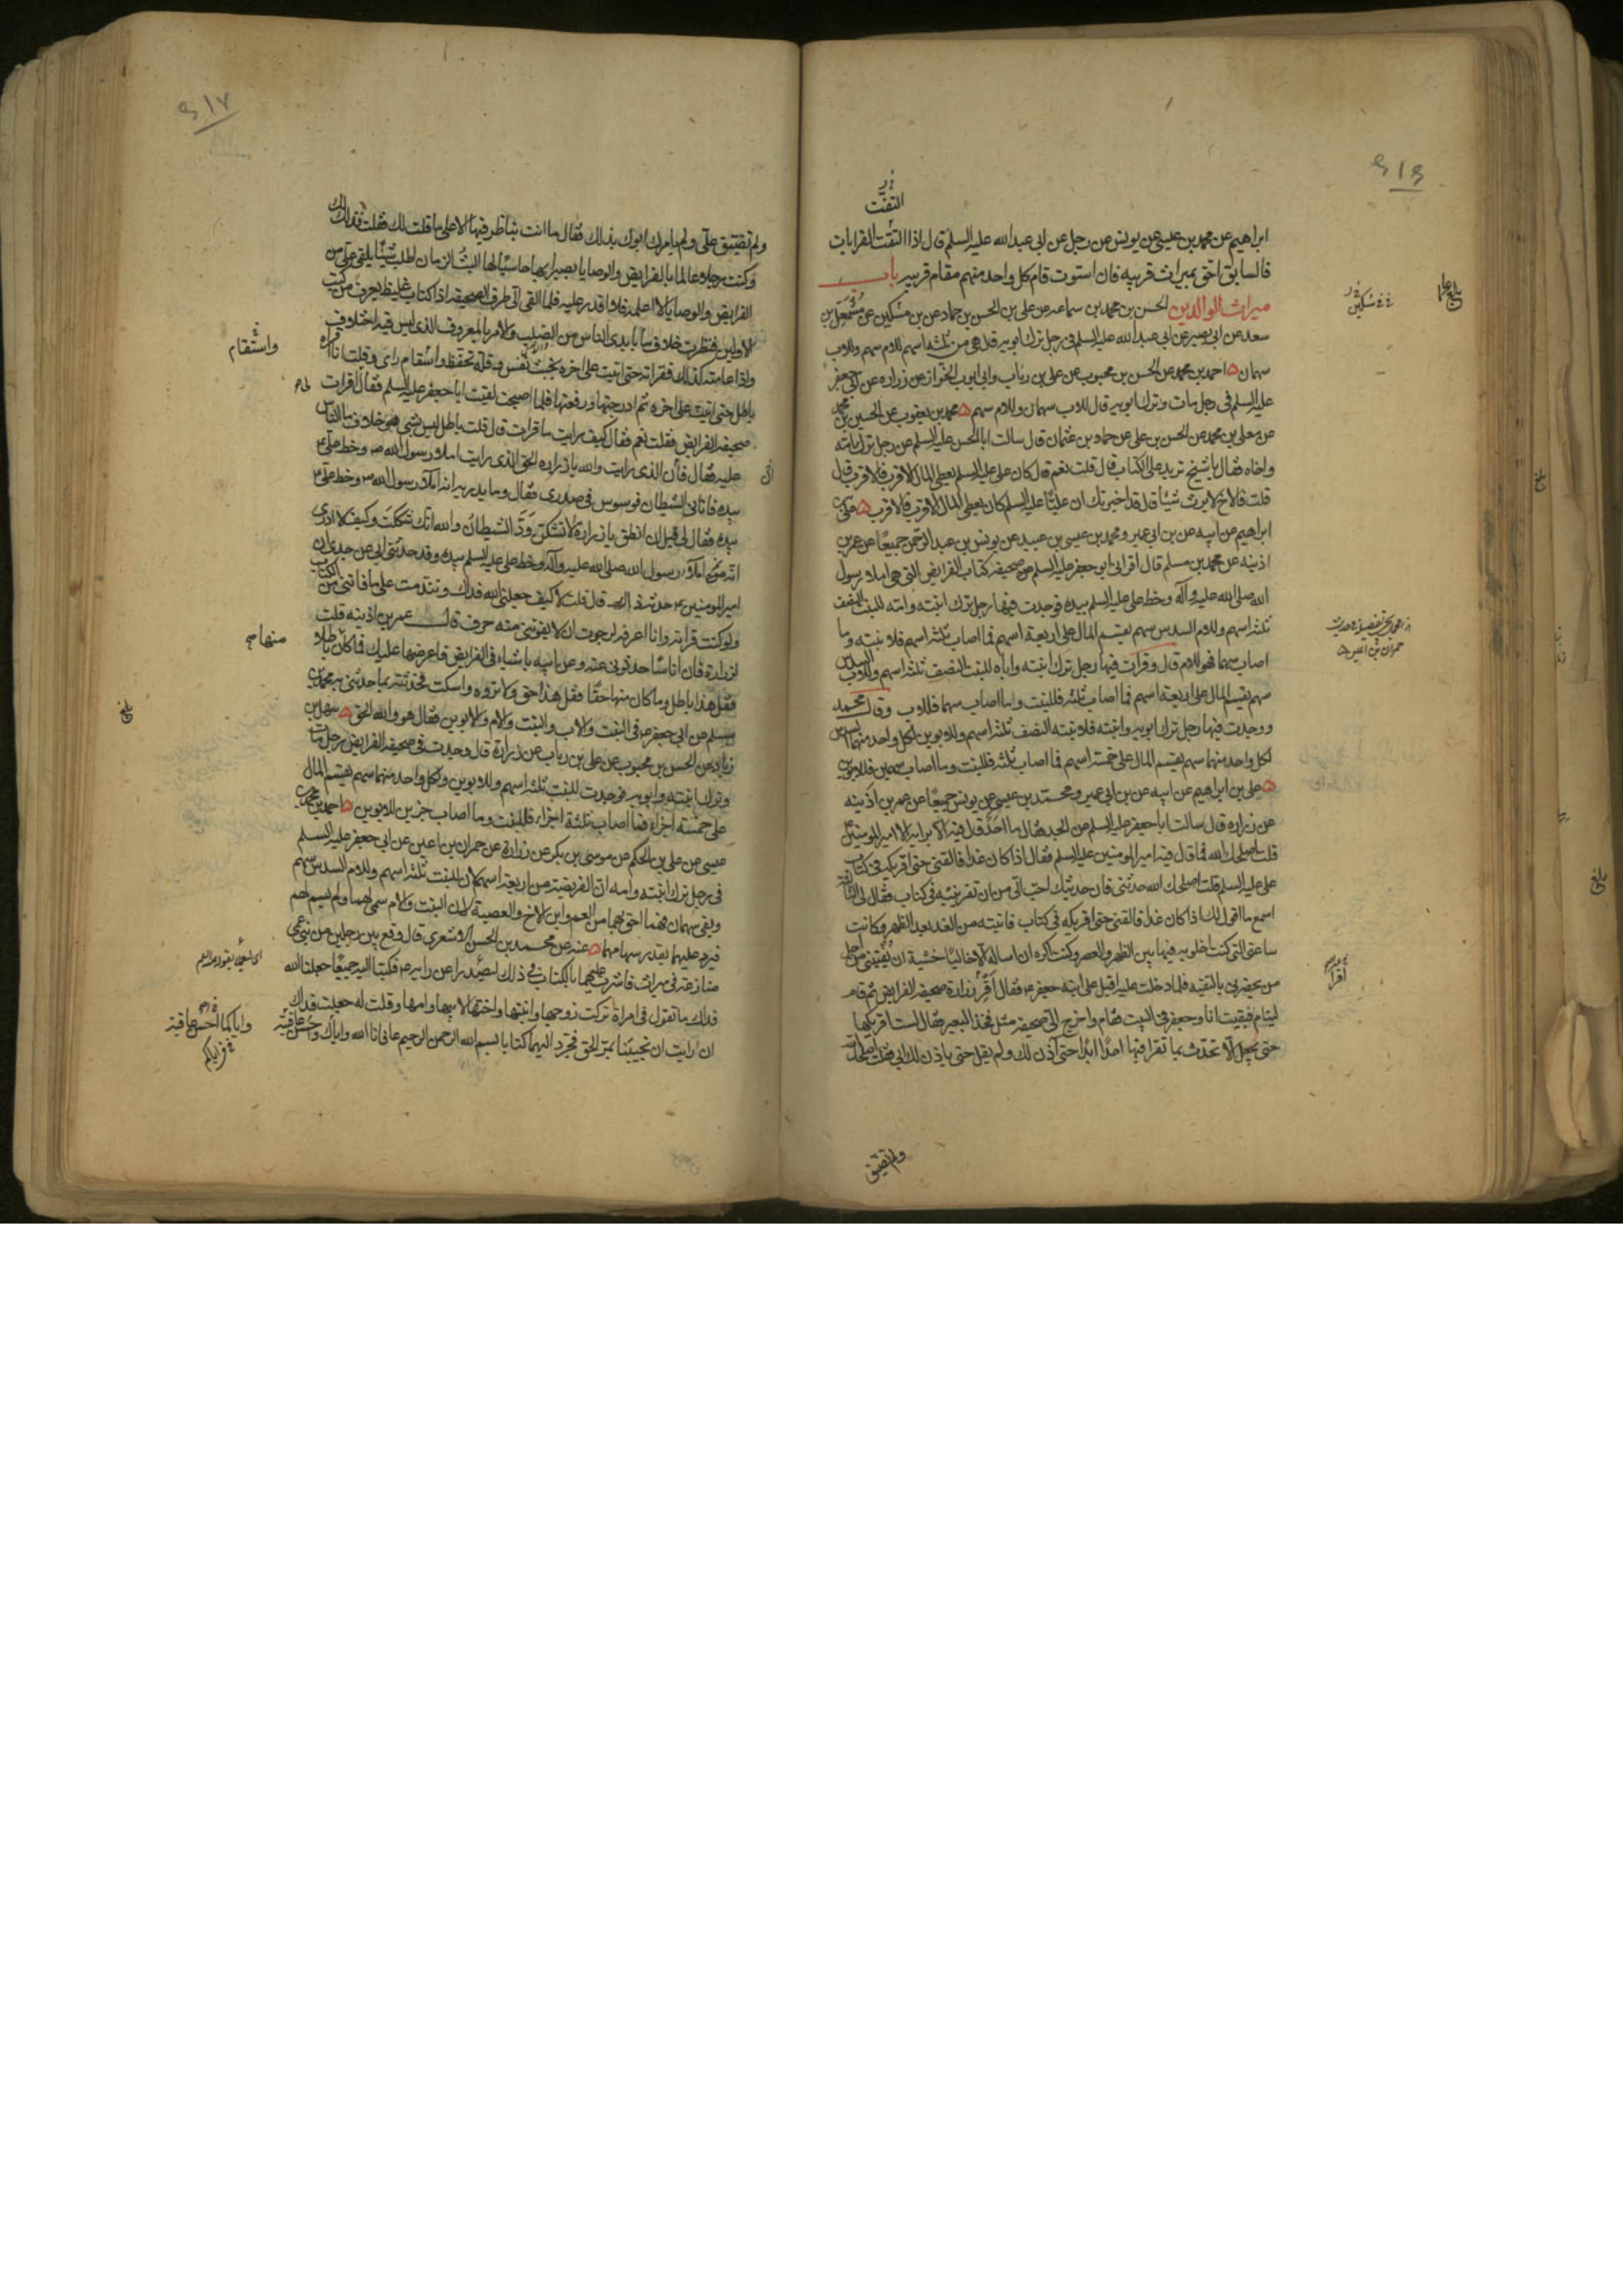 ٦١٦
التفت
ابراهيم عن محمد بن عيسى عن يونس عن رجل عن ابى عبدالله عليه السلم قال اذا التفت القرابات
فالسابق احق بميراث قريبه فان استوت قام كل واحد منهم مقام قريبه باب
ميراث الوالدين الحسن بن محمد بن سماعه عن على بن الحسن بن حماد عن بن مسكين عن مشمعل بن
سعد عن ابى بصير عن ابى عبد الله عليه السلم فى رجل ترك ابويه قال هى من ثلثه اسهم للام سهم وللاب
سهمان احمد بن محمد عن الحسن بن محبوب عن على بن رياب وابى ايوب الخزاز عن زراره عن ابى جعفر
عليه السلم فى رجل مات وترك ابويه قال للاب سهمان وللام سهم محمد بن يعقوب عن الحسين بن محمد
عن معلى بن محمد عن الحسن بن على عن حماد بن عثمان قال سالت ابا الحسن عليه السلم عن رجل ترك امه
واخاه فقال يا شيخ تريد على الكتاب قال قلت نعم قال كان على عليه السلم يعطى المال الاقرب فالاقرب قال
قلت فالاخ لا يرث شيئا قال قد اخبرتك ان عليا عليه السلم كان يعطى المال الاقرب فالاقرب على بن
ابراهيم عن ابيه عن بن ابى عمير ومحمد بن عيسى بن عبيد عن يونس بن عبد الرحمن جميعا عن عمر بن
اذينه عن محمد بن مسلم قال اقرانى ابو جعفر عليه السلم صحيفه كتاب الفرايض التى هى املاء رسول
الله صلى الله عليه وآله وخط على عليه السلم بيده فوجدت فيها رجل ترك ابنته وامه للبنت النصف
ثلثه اسهم وللام السدس سهم يقسم المال على اربعة اسهم فما اصاب ثلثه اسهم فلابنته وما
اصاب سهما فهو للام قال وقرات فيها رجل ترك ابنته واباه للبنت النصف ثلثه اسهم وللاب السدس
سهم يقسم المال على اربعة اسهم فما اصاب ثلثه فللبنت وما اصاب سهما فللاب وقال محمد
ووجدت فيها رجل ترك ابويه وابنته فلابنته النصف ثلثه اسهم وللابوين لكل واحد منهما السدس
لكل واحد منهما سهم يقسم المال على خمسة اسهم فما اصاب ثلثه فللبنت وما اصاب سهمين فللابوين
على بن ابراهيم عن ابيه عن بن ابى عمير ومحمد بن عيسى عن يونس جميعا عن عمر بن اذينه
عن زراره قال سالت ابا جعفر عليه السلم عن الجد فقال ما احد قال فيه الا برايه الا امير المومنين ع
قلت اصلحك الله فما قال فيه امير المومنين عليه السلم فقال اذا كان غدا فالقنى حتى اقريكه فى كتاب
على عليه السلم قلت اصلحك الله حدثنى فان حديثك احب الى من ان تقرينيه فى كتاب فقال لى الثانية
اسمع ما اقول لك اذا كان غدا فالقنى حتى اقريكه فى كتاب فاتيته من الغد بعد الظهر وكانت
ساعتى التى كنت اخلو به فيها بين الظهر والعصر وكنت اكره ان اساله الا خاليا خشية ان يفتينى من اجل
من يحضرنى بالتقيه فلما دخلت عليه اقبل على ابنه جعفر ع فقال اقر زرارة صحيفه الفرايض ثم قام
لينام فبقيت انا وجعفر فى البيت فقام واخرج الى صحيفه مثل فخذ البعير فقال لست اقريكها
حتى تجعل الا تحدث بما تقرا فيها احدا ابدا حتى آذن لك ولم يقل حتى ياذن لك ابى فقلت اصلحك الله
ولم تضيق
٦١٧
ولم تضيق على ولم يامرك ابوك بذلك فقال ما انت بناظر فيها الا على ما قلت لك فقلت فذلك لك
وكنت رجلا عالما بالفرايض والوصايا بصيرا بها حاسبا لها البث الزمان اطلب شيئا يلقى على من
الفرايض والوصايا لا اعلمه فلا اقدر عليه فلما القى الى طرف الصحيفه اذا كتاب غليظ يعرف من كتب
الاولين فنظرت خلاف ما بايدى الناس من الصلب والامر بالمعروف الذى ليس فيه اختلاف
واذا عامته كذلك فقراته حتى اتيت على اخره بخبث نفس وقلة تحفظ واسقام راى وقلت انا اقراه
باطل حتى اتيت على اخره ثم ادرجتها ورفعتها فلما اصبحت لقيت ابا جعفر عليه السلم فقال اقرات
صحيفه الفرايض فقلت نعم فقال كيف رايت ما قرات قال قلت باطل ليس بشى هو خلاف ما الناس
عليه فقال فان الذى رايت والله يا زراره الحق الذى رايت املاء رسول الله ص وخط على ع
بيده فاتانى الشيطان فوسوس فى صدرى فقال وما يدريه انه املاء رسول الله ص وخط على ع
بيده فقال لى قبل ان انطق يا زراره لا تشكن ود الشيطان والله انك شككت وكيف لا ادرى
انه من املاء رسول الله صلى الله عليه وآله وخط على عليه السلم بيده وقد حدثنى ابى عن جدى ان
امير المومنين ع حدثه ذلك قال قلت لا كيف جعلنى الله فداك وتندمت على ما فاتنى من الكتاب
ولو كنت قراته وانا اعرفه لرجوت ان لا يفوتنى منه حرف قال عمر بن اذينه قلت
لزرارة فان اناسا حدثونى عنه وعن ابيه باشياء فى الفرايض فاعرضها عليك فما كان باطلا
فقل هذا باطل وما كان منها حقا فقل هذا حق ولا تروه واسكت فحدثته بما حدثنى به محمد بن
مسلم عن ابى جعفر ع فى البنت والاب والبنت والام والابوين فقال هو والله الحق سهل بن
زياد عن الحسن بن محبوب عن على بن رياب عن زرارة قال وجدت فى صحيفه الفرايض رجل مات
وترك ابنته وابويه فوجدت للبنت ثلثه اسهم وللابوين ولكل واحد منهما سهم يقسم المال
على خمسة اجزاء فما اصاب ثلثة اجزاء فللبنت وما اصاب جزين للابوين احمد بن محمد بن
عيسى عن على بن الحكم عن موسى بن بكر عن زرارة عن حمران بن اعين عن ابى جعفر عليه السلم
فى رجل ترك ابنته وامه ان الفريضة من اربعة اسهم لان للبنت ثلثه اسهم وللام السدس سهم
وبقى سهمان فهما احق بهما من العم وابن الاخ والعصبة لان البنت والام سمى لهما ولم يسم لهم
فيرد عليهما بقدر سهامهما عنه عن محمد بن الحسن الاشعرى قال وقع بين رجلين من بنى عمى
منازعة فى ميراث فاشرت عليهما بالكتاب فى ذلك ليصدرا عن رايه ع فكتبا اليه جميعا جعلنا الله
فداك ما تقول فى امراة تركت زوجها وابنتها واختها لابيها وامها وقلت له جعلت فداك
ان رايت ان تجيبنا بمر الحق فخرج اليهما كتابا بسم الله الرحمن الرحيم عافانا الله واياك
واستقام
منها